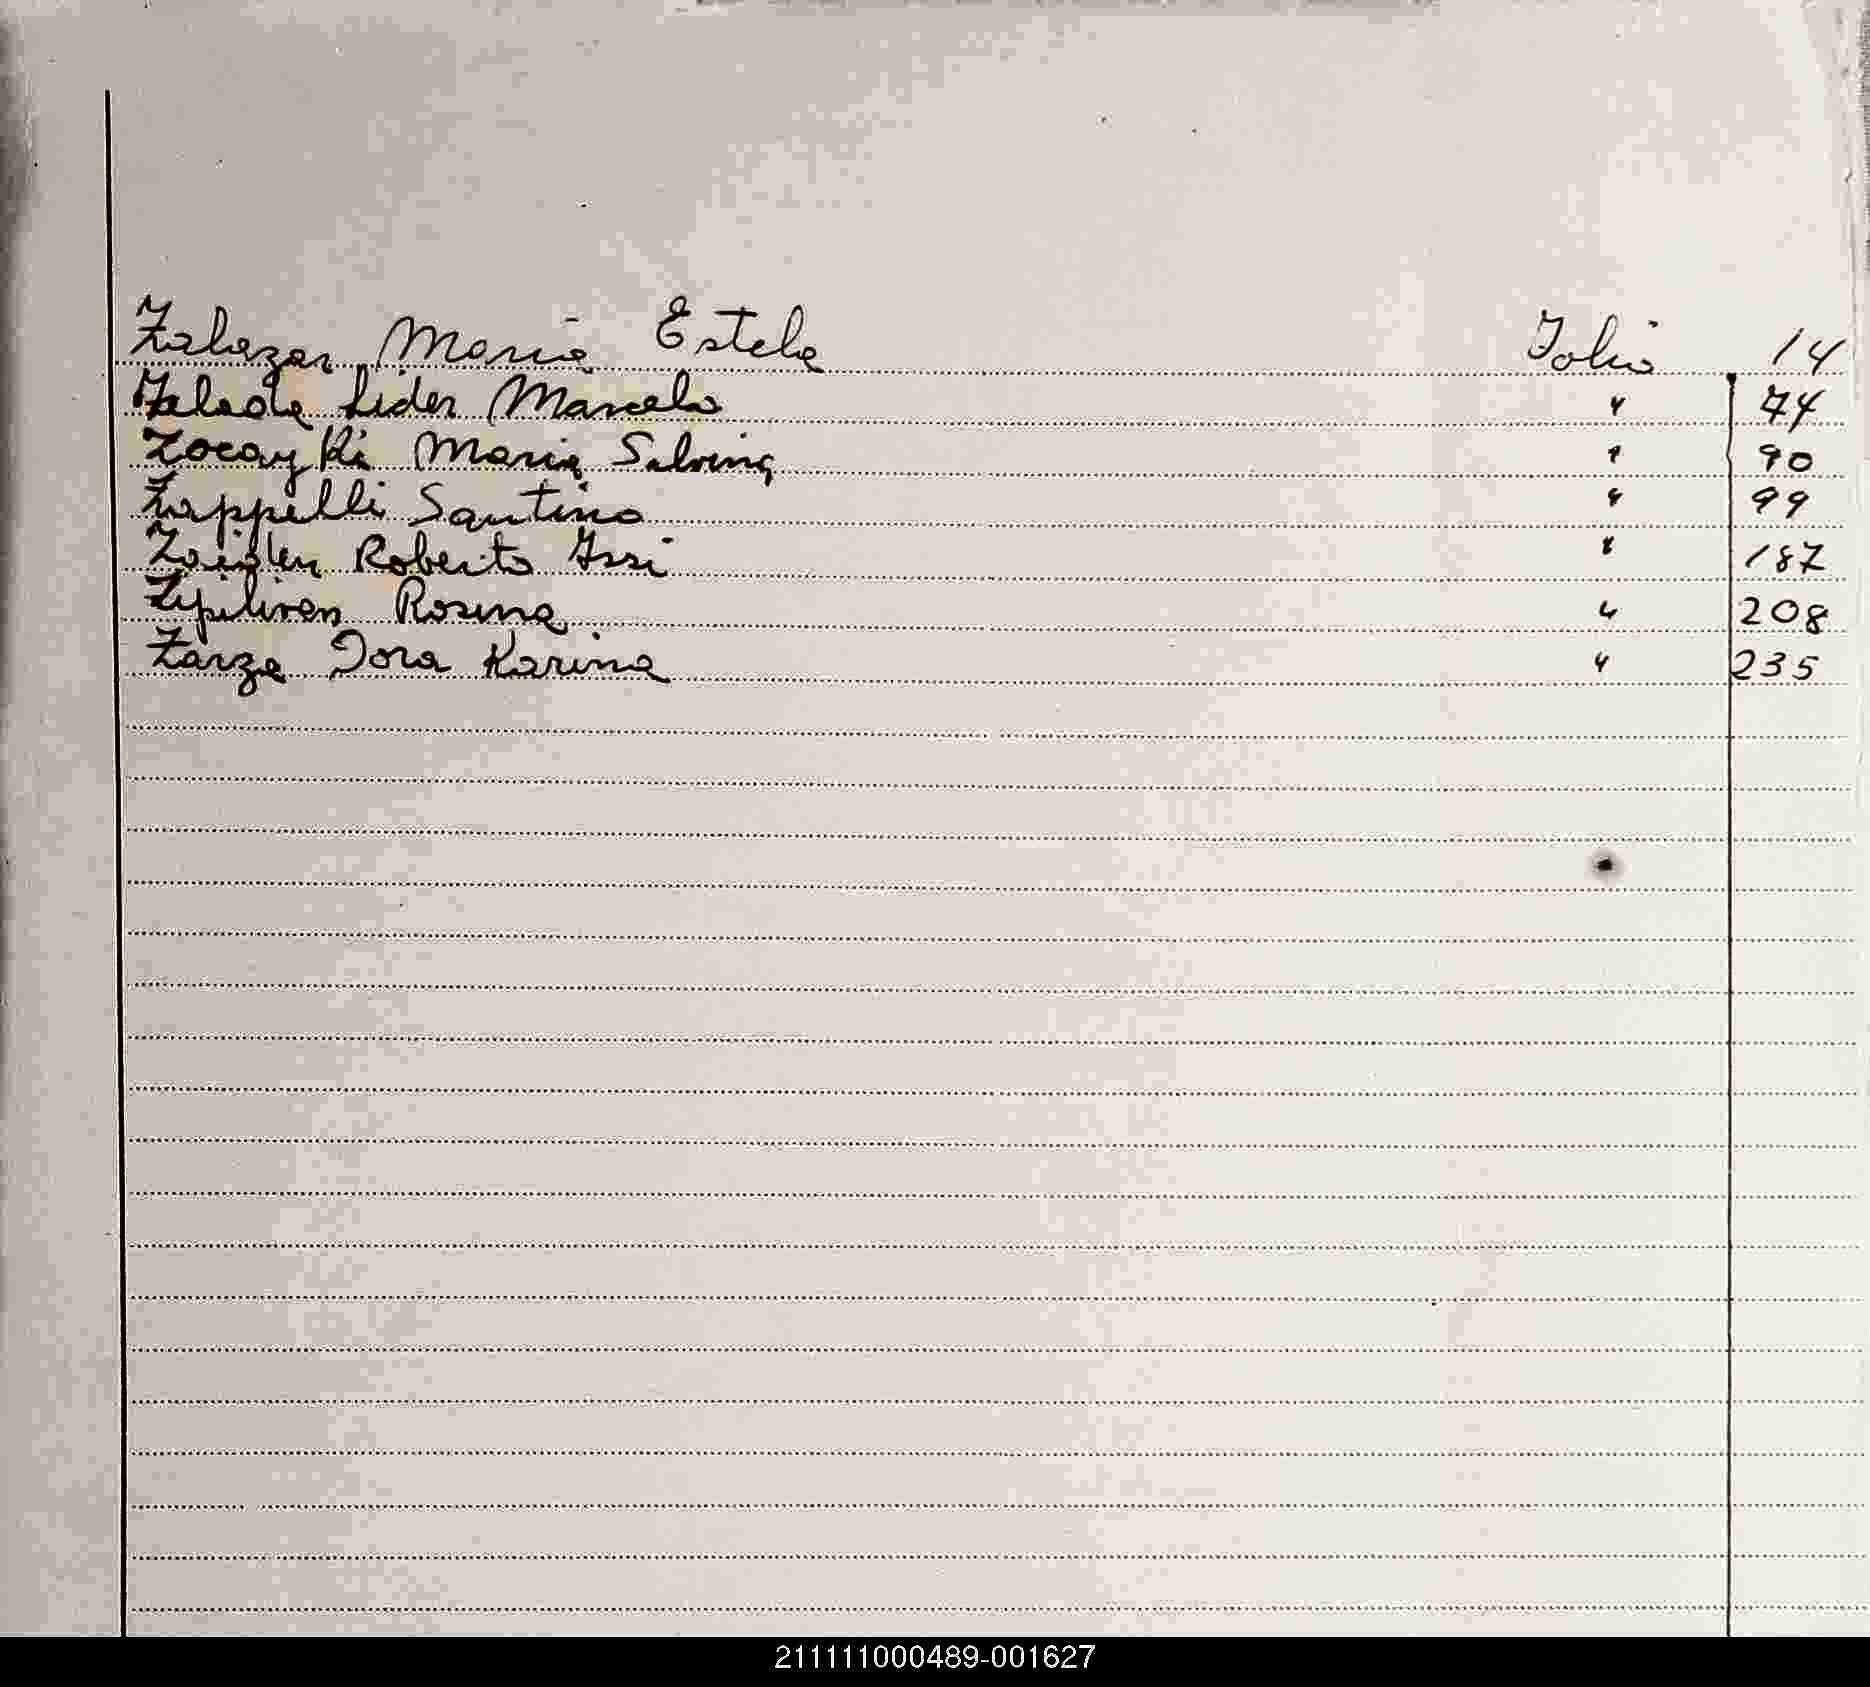 Zalazar Maria Estela Folio 14
Zalada Lider Marcelo " 74
Zocay Ki Maria Salvina " 90
Zappelli Santino " 99
Roberto " 187
Rosina " 208
Zarza Dora Karina " 235
211111000489-001627